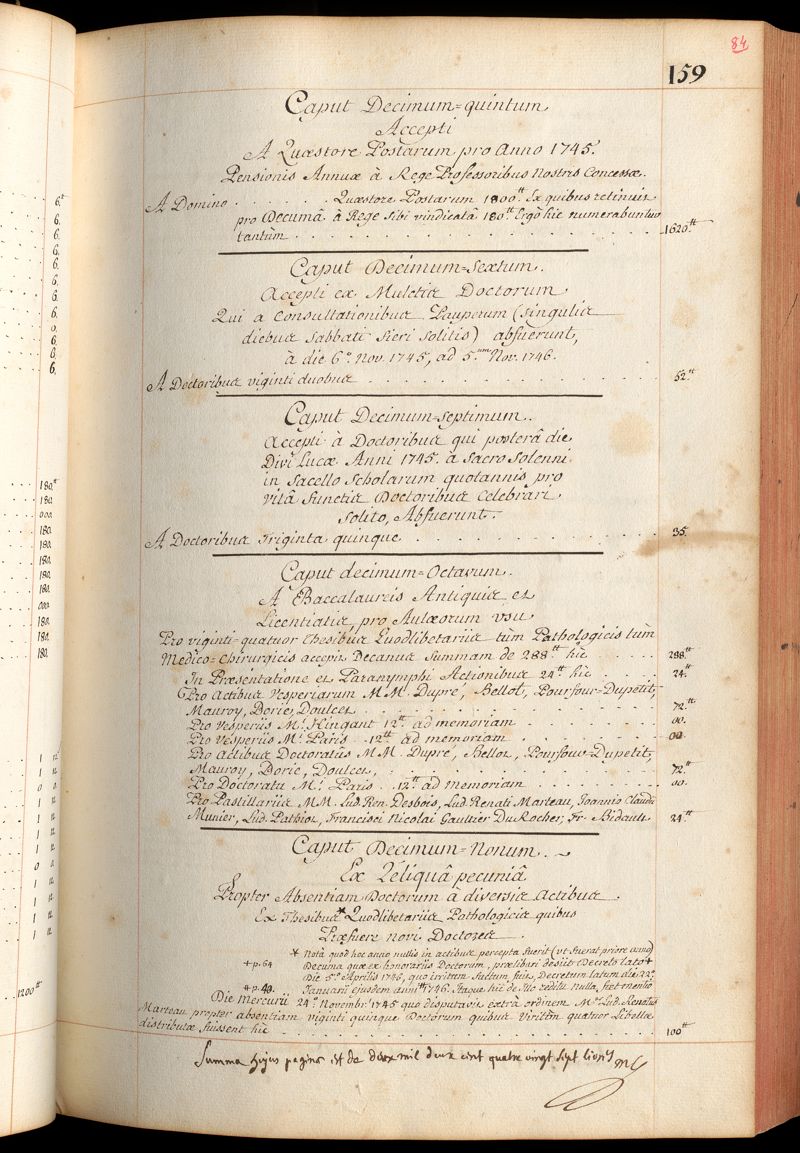 84
159
Caput Decimum=quintum
Accepti
A Quæstore Postarum pro Anno 1745.
Pensionis Annuæ à Rege Professoribus Nostris Concessæ.
A Domino . . . . . . . Quæstore Postarum 1800.tt Ex quibus retinuit
pro Decumâ à Rege Sibi vindicatâ 180.tt Ergò hîc numerabuntur
tantùm . . . . . . . . . . . . . . . . . . . . . . 1620.tt
Caput Decimum=Sextum.
Accepti ex Mulctis Doctorum
Qui a Consultationibus Pauperum (singulis
diebus Sabbati fieri solitis) abfuerunt,
à die 6.ª Nov. 1745, ad 5.um Nov. 1746.
A Doctoribus viginti duobus . . . . . . . . . . . . . . . . . . 52.tt
Caput Decimum=Septimum.
Accepti à Doctoribus qui posterâ die
Divi Lucæ Anni 1745. à Sacro Solenni
in Sacello Scholarum quotannis pro
vitâ functis Doctoribus Celebrari
Solito, Abfuerunt.
A Doctoribus Triginta quinque . . . . . . . . . . . . . . . 35.
Caput decimum=Octavum.
A Baccalaureis Antiquis et
Licentiatis pro Aulæorum usu
Pro viginti-quatuor Thesibus Quodlibetariis tùm Pathologicis tùm
Medico=Chirurgicis accepit Decanus Summam de 288tt hîc . . . . 288.tt
In Præsentatione et Paranymphi Actionibus 24tt hîc . . . . 24.tt
Pro Actibus Vesperiarum M M. Dupré, Bellot, Pourfour=Dupetit,
Mauroy, Dorie, Doulcet . . . . . . . . . . . . . . . . . 72.tt
Pro Vesperiis M.i Hingant 12.tt ad memoriam . . . . . . . . 00.
Pro Vesperiis M.i Paris . . 12.tt ad memoriam . . . . . . . . 00.
Pro Actibus Doctoratûs M M. Dupré, Bellot, Pourfour=Dupetit,
Mauroy, Dorie, Doulcet, . . . . . . . . . . . . . . . . 72.tt
Pro Doctoratu M.i Paris . . 12.tt ad memoriam . . . . . . . 00.
Pro Pastillariis M M. Lud. Ren. Desbois, Lud. Renati Marteau, Joannis Claudii
Munier, Lud. Pathiot, Francisci Nicolai Gaultier DuRocher, Fr. Bidault 24.tt
Caput Decimum=Nonum.
Ex Reliquâ pecuniâ
Propter Absentiam Doctorum à diversis Actibus
Ex Thesibus* Quodlibetariis Pathologicis quibus
Præfuere novi Doctores
* Notâ quod hoc anno nullis in actibus percepta fuerit (ut fuerat priore anno)
+ p. 64 Decuma quæ ex honorariis Doctorum, prælibari desiit Decreto lato +
Die 5.ª Aprilis 1746, quo irritum factum fuit, Decretum latum die 22.ª
+ p. 49. Januarii ejusdem anni 1746. Itaque hîc de illo reditu nulla fiet mentio
Die Mercurii 24.ª Novembr. 1745 quo disputavit extrà ordinem M.us Lud. Renatus
Marteau propter absentiam viginti quinque Doctorum quibus Viritim quatuor Libellæ
distributæ fuissent hîc . . . . . . . . . . . . . . . . . . . 100tt
Summa hujus paginæ est de deux mil deux cent quatre vingt sept livres
6.tt
6.
6.
6.
6.
6.
6.
6.
6.
6.
6.
180.tt
180.
000.
180.
180.
180.
180.
180.
000.
180.
180.
180.
1200tt